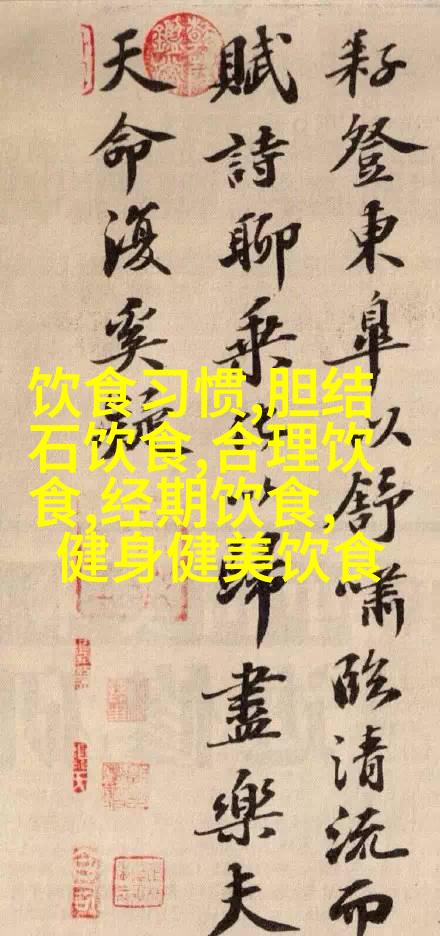 耔登東皐以舒嘯臨清流而
賦詩聊乘化以歸盡樂夫
天命復奚疑
饮食习惯,胆结
石饮食,合理饮
食,经期饮食,
健身健美饮食